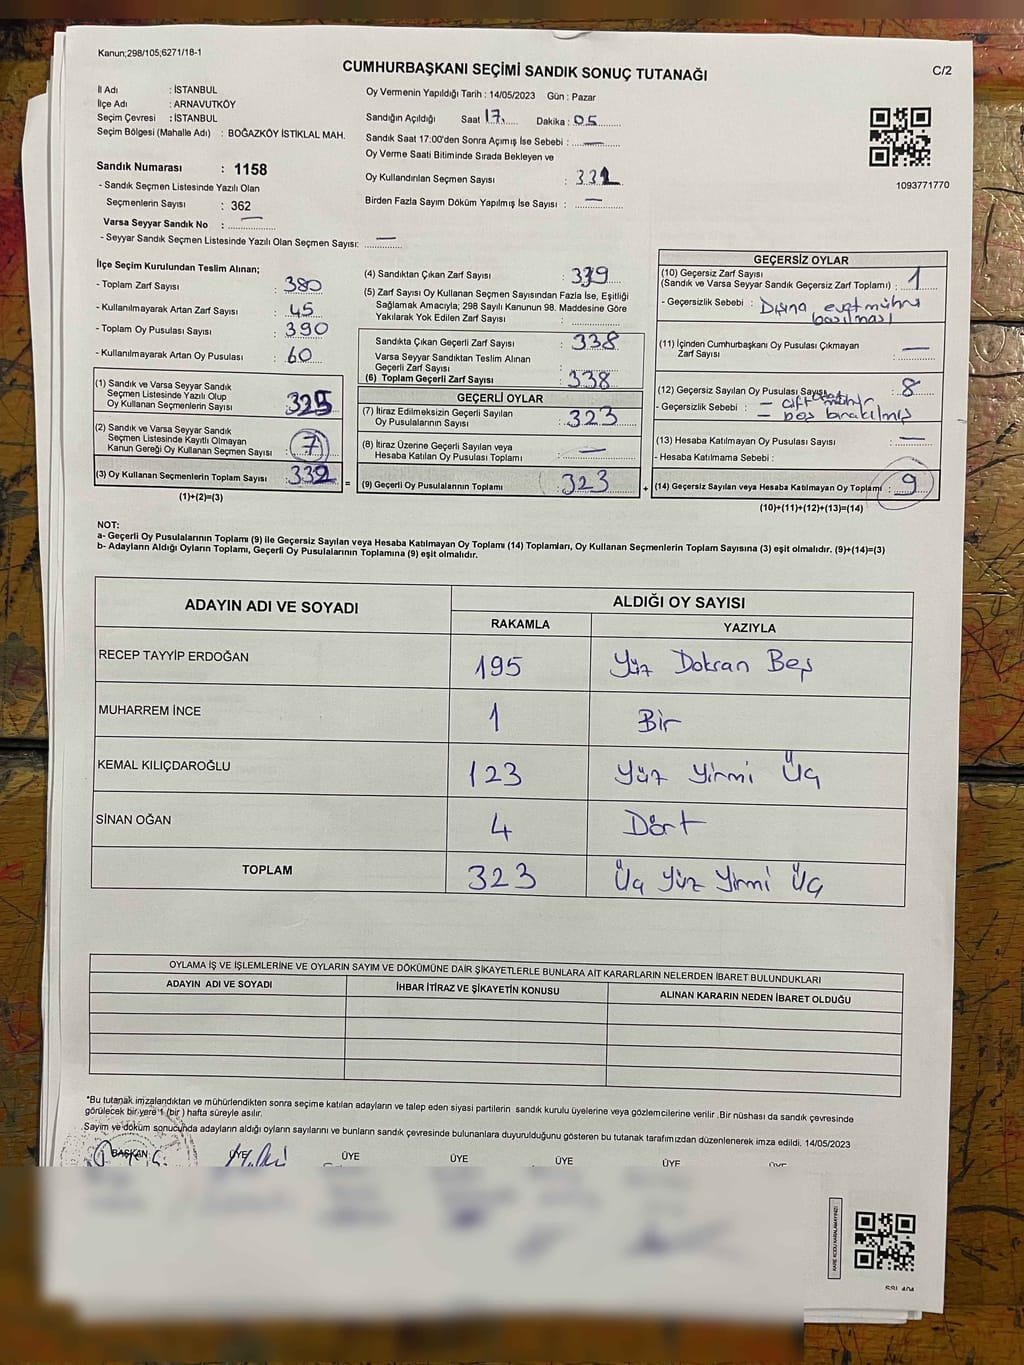 Kanun;298/105;6271/18-1
CUMHURBAŞKANI SEÇİMİ SANDIK SONUÇ TUTANAĞI
C/2
İl Adı : İSTANBUL
İlçe Adı : ARNAVUTKÖY
Seçim Çevresi : İSTANBUL
Seçim Bölgesi (Mahalle Adı) : BOĞAZKÖY İSTİKLAL MAH.
Sandık Numarası : 1158
- Sandık Seçmen Listesinde Yazılı Olan
Seçmenlerin Sayısı : 362
Varsa Seyyar Sandık No : —
- Seyyar Sandık Seçmen Listesinde Yazılı Olan Seçmen Sayısı: —
Oy Vermenin Yapıldığı Tarih : 14/05/2023 Gün : Pazar
Sandığın Açıldığı Saat 17 Dakika : 05
Sandık Saat 17:00'den Sonra Açımış İse Sebebi : —
Oy Verme Saati Bitiminde Sırada Bekleyen ve
Oy Kullandırılan Seçmen Sayısı : 332
Birden Fazla Sayım Döküm Yapılmış İse Sayısı : —
1093771770
İlçe Seçim Kurulundan Teslim Alınan;
- Toplam Zarf Sayısı : 380
- Kullanılmayarak Artan Zarf Sayısı : 45
- Toplam Oy Pusulası Sayısı : 390
- Kullanılmayarak Artan Oy Pusulası : 60
(1) Sandık ve Varsa Seyyar Sandık
Seçmen Listesinde Yazılı Olup
Oy Kullanan Seçmenlerin Sayısı : 325
(2) Sandık ve Varsa Seyyar Sandık
Seçmen Listesinde Kayıtlı Olmayan
Kanun Gereği Oy Kullanan Seçmen Sayısı : 7
(3) Oy Kullanan Seçmenlerin Toplam Sayısı : 332
(1)+(2)=(3)
(4) Sandıktan Çıkan Zarf Sayısı : 339
(5) Zarf Sayısı Oy Kullanan Seçmen Sayısından Fazla İse, Eşitliği
Sağlamak Amacıyla; 298 Sayılı Kanunun 98. Maddesine Göre
Yakılarak Yok Edilen Zarf Sayısı :
Sandıkta Çıkan Geçerli Zarf Sayısı : 338
Varsa Seyyar Sandıktan Teslim Alınan
Geçerli Zarf Sayısı :
(6) Toplam Geçerli Zarf Sayısı : 338
GEÇERLİ OYLAR
(7) İtiraz Edilmeksizin Geçerli Sayılan
Oy Pusulalarının Sayısı : 323
(8) İtiraz Üzerine Geçerli Sayılan veya
Hesaba Katılan Oy Pusulası Toplamı : —
= (9) Geçerli Oy Pusulalarının Toplamı : 323
GEÇERSİZ OYLAR
(10) Geçersiz Zarf Sayısı
(Sandık ve Varsa Seyyar Sandık Geçersiz Zarf Toplamı) : 1
- Geçersizlik Sebebi : Dışına evet mührü
basılması
(11) İçinden Cumhurbaşkanı Oy Pusulası Çıkmayan
Zarf Sayısı : —
(12) Geçersiz Sayılan Oy Pusulası Sayısı : 8
- Geçersizlik Sebebi : — çift mühür
— boş bırakılmış
(13) Hesaba Katılmayan Oy Pusulası Sayısı : —
- Hesaba Katılmama Sebebi :
+ (14) Geçersiz Sayılan veya Hesaba Katılmayan Oy Toplamı : 9
(10)+(11)+(12)+(13)=(14)
NOT:
a- Geçerli Oy Pusulalarının Toplamı (9) ile Geçersiz Sayılan veya Hesaba Katılmayan Oy Toplamı (14) Toplamları, Oy Kullanan Seçmenlerin Toplam Sayısına (3) eşit olmalıdır. (9)+(14)=(3)
b- Adayların Aldığı Oyların Toplamı, Geçerli Oy Pusulalarının Toplamına (9) eşit olmalıdır.
ADAYIN ADI VE SOYADI ALDIĞI OY SAYISI
RAKAMLA YAZIYLA
RECEP TAYYİP ERDOĞAN 195 Yüz Doksan Beş
MUHARREM İNCE 1 Bir
KEMAL KILIÇDAROĞLU 123 Yüz Yirmi Üç
SİNAN OĞAN 4 Dört
TOPLAM 323 Üç Yüz Yirmi Üç
OYLAMA İŞ VE İŞLEMLERİNE VE OYLARIN SAYIM VE DÖKÜMÜNE DAİR ŞİKAYETLERLE BUNLARA AİT KARARLARIN NELERDEN İBARET BULUNDUKLARI
ADAYIN ADI VE SOYADI İHBAR İTİRAZ VE ŞİKAYETİN KONUSU ALINAN KARARIN NEDEN İBARET OLDUĞU
*Bu tutanak imzalandıktan ve mühürlendikten sonra seçime katılan adayların ve talep eden siyasi partilerin sandık kurulu üyelerine veya gözlemcilerine verilir .Bir nüshası da sandık çevresinde
görülecek bir yere 1 (bir ) hafta süreyle asılır.
Sayım ve döküm sonucunda adayların aldığı oyların sayılarını ve bunların sandık çevresinde bulunanlara duyurulduğunu gösteren bu tutanak tarafımızdan düzenlenerek imza edildi. 14/05/2023
BAŞKAN ÜYE ÜYE ÜYE ÜYE ÜYE ÜYE